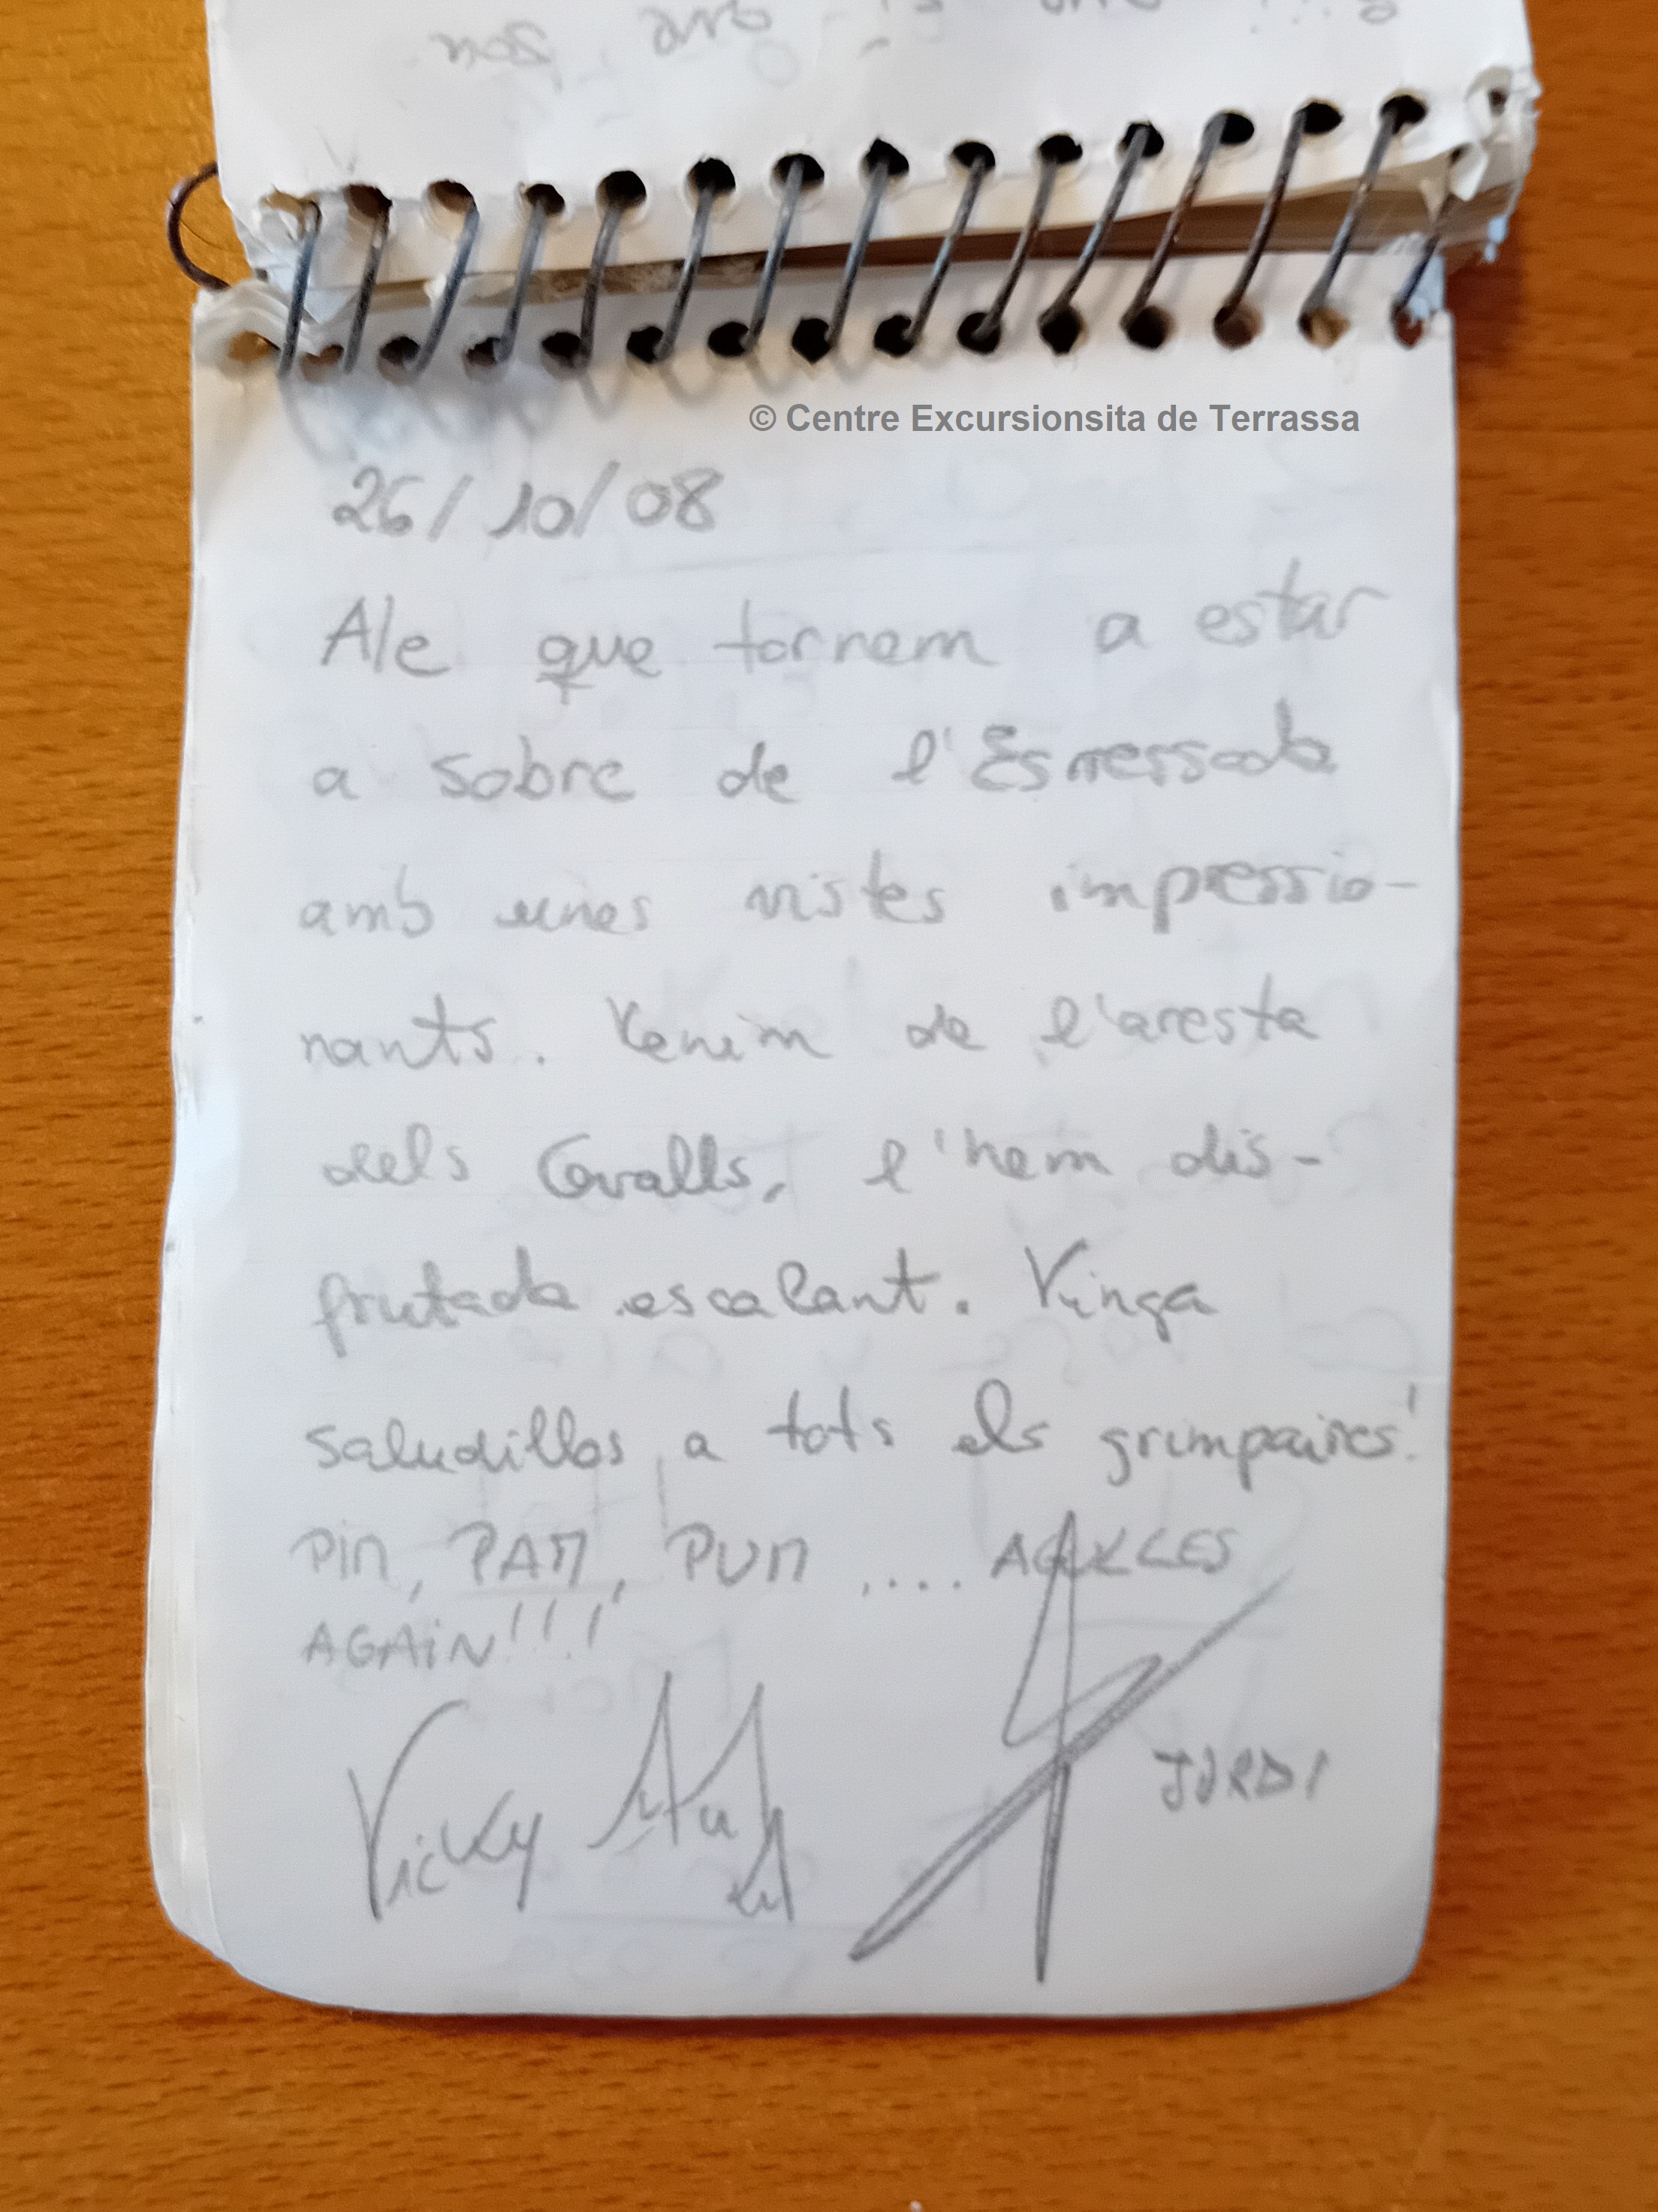 que son
© Centre Excursionsita de Terrassa
26/10/08
Ale que tornem a estar
a sobre de l'Esmessada
amb unes vistes impressio-
nants. Venim de l'aresta
dels Cavalls, l'hem dis-
frutada escalant. Vinga
saludillos a tots els grimpaires!
PiN, PAM, PUM .... AGULLES
AGAiN!!!!
Vicky
JORDI